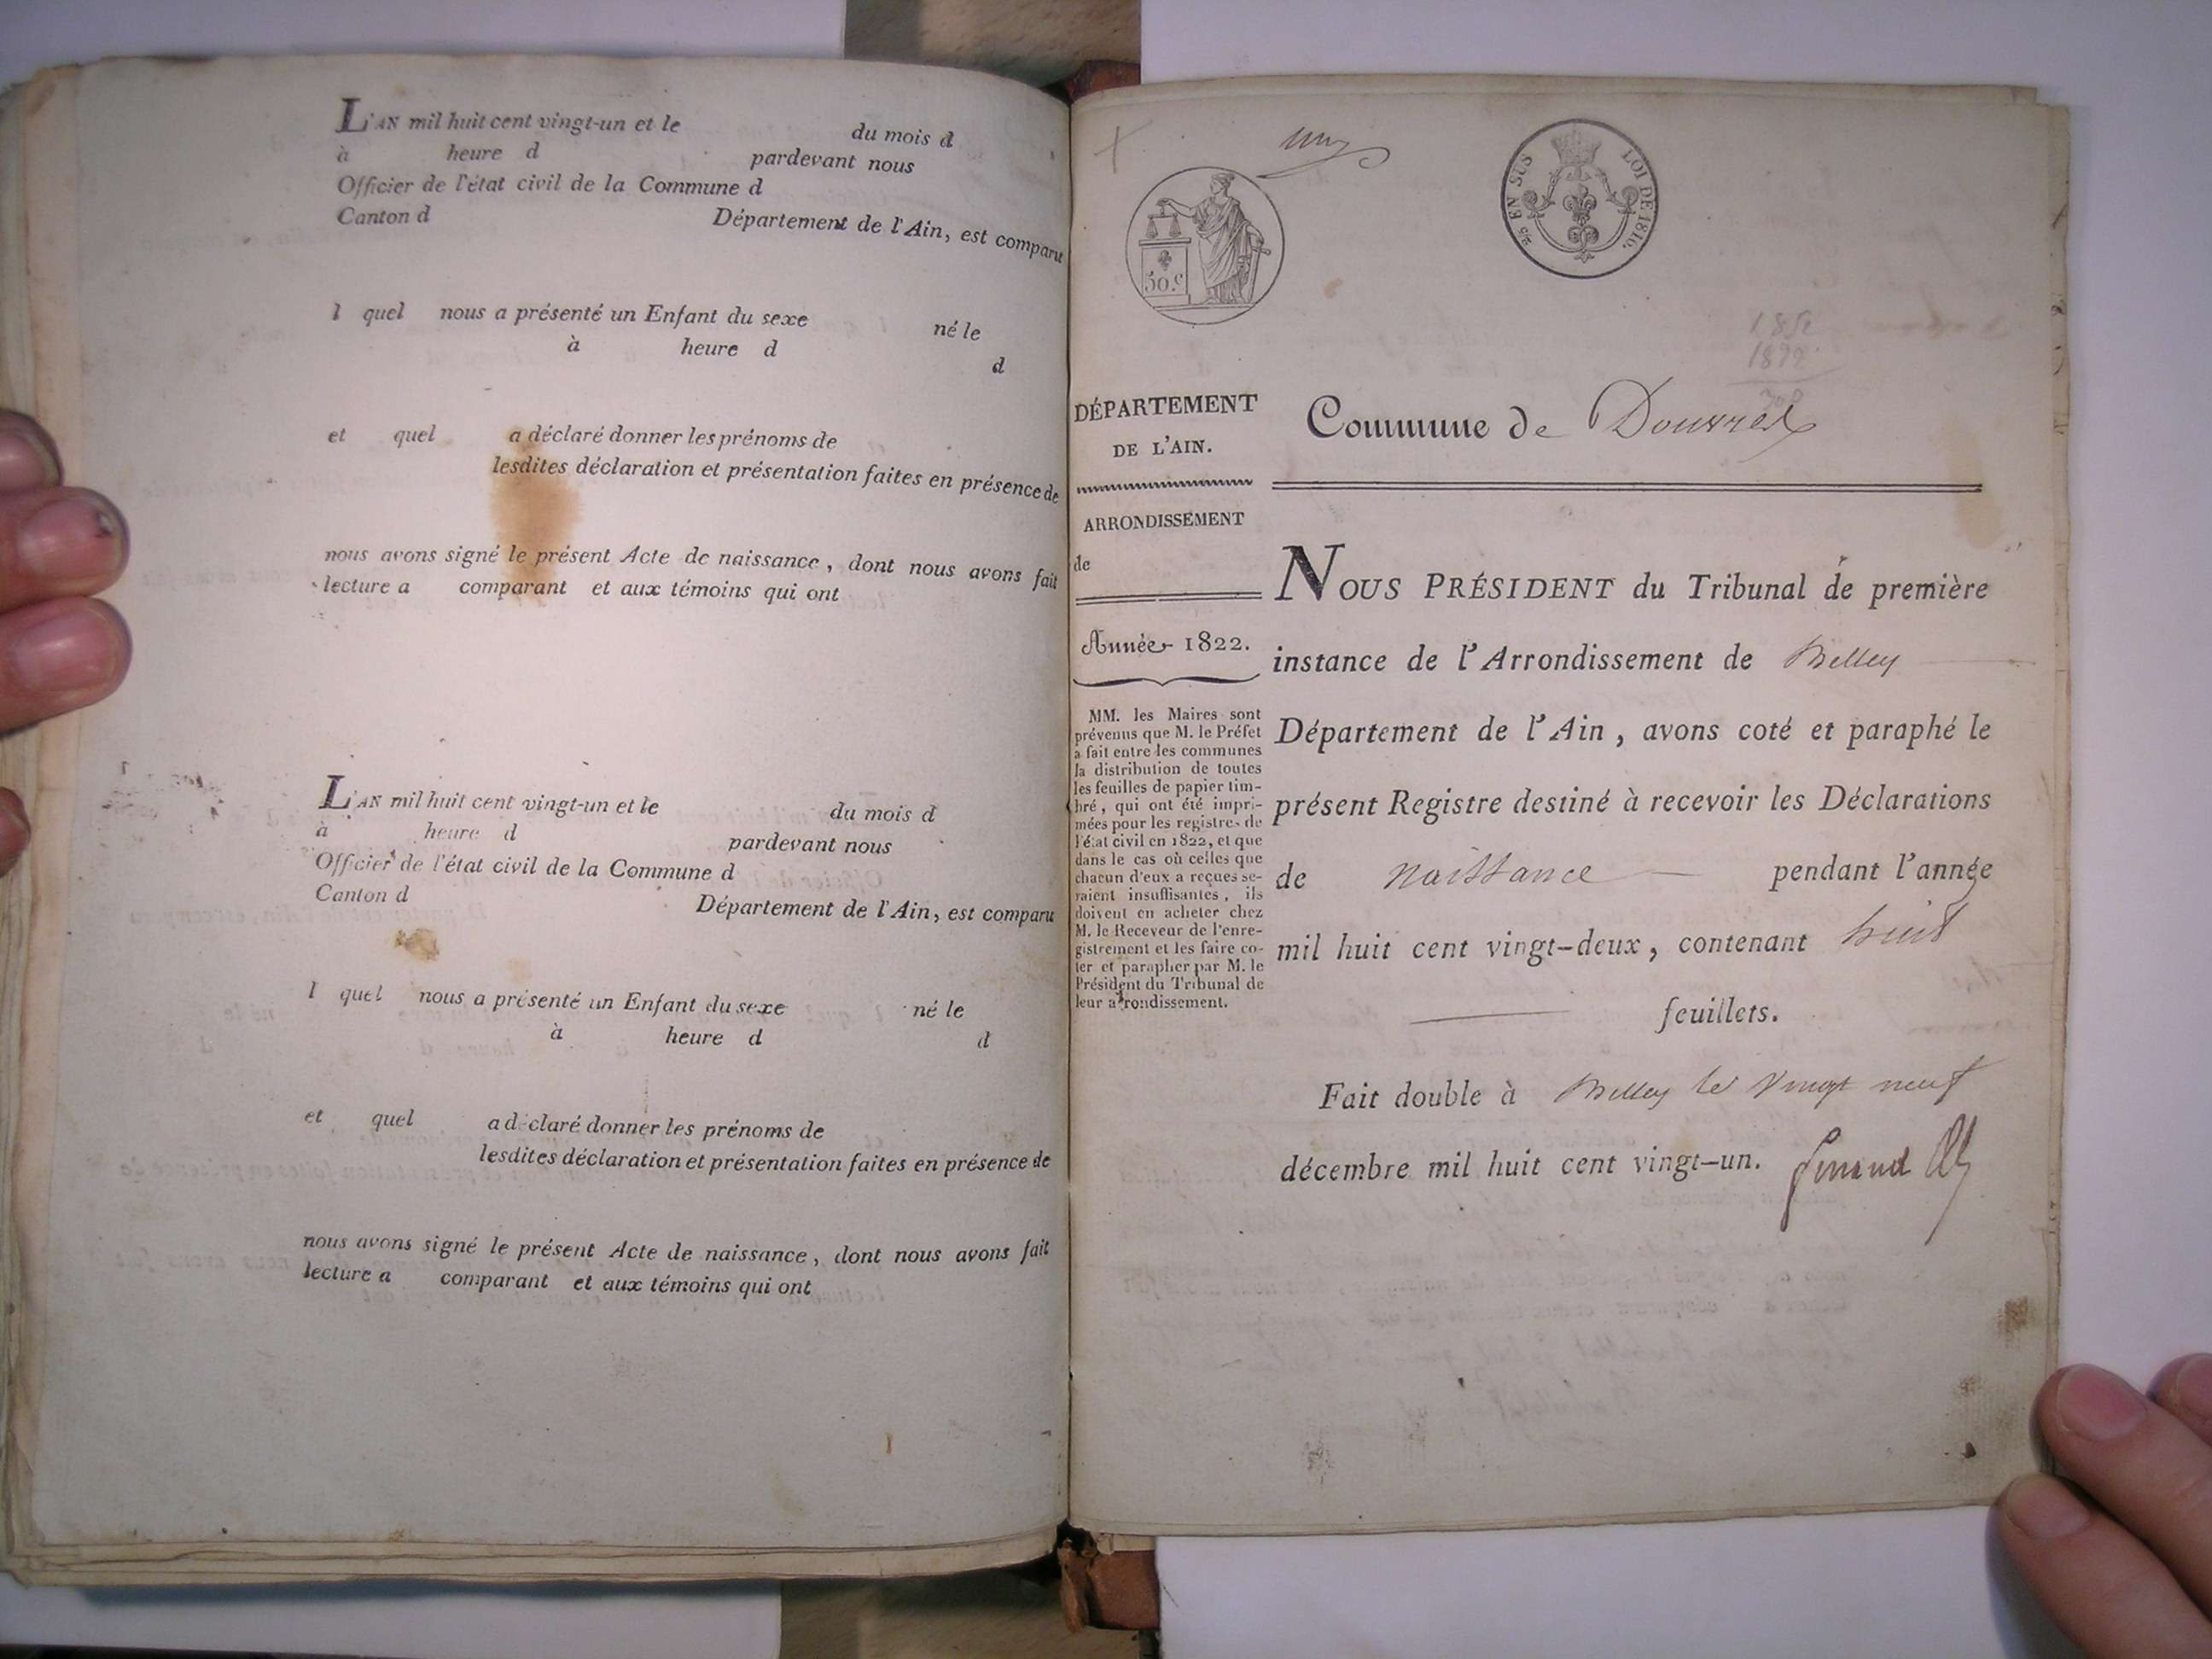 L'AN mil huit cent vingt-un et le du mois d
à heure d pardevant nous
Officier de l'état civil de la Commune d
Canton d Département de l'Ain, est comparu
l quel nous a présenté un Enfant du sexe né le
à heure d
d
et quel a déclaré donner les prénoms de
lesdites déclaration et présentation faites en présence de
nous avons signé le présent Acte de naissance, dont nous avons fait
lecture a comparant et aux témoins qui ont
L'AN mil huit cent vingt-un et le du mois d
à heure d pardevant nous
Officier de l'état civil de la Commune d
Canton d Département de l'Ain, est comparu
l quel nous a présenté un Enfant du sexe né le
à heure d d
et quel a déclaré donner les prénoms de
lesdites déclaration et présentation faites en présence de
nous avons signé le présent Acte de naissance, dont nous avons fait
lecture a comparant et aux témoins qui ont
un
50.c
2/5 EN SUS LOI DE 1816.
DÉPARTEMENT
DE L'AIN.
ARRONDISSEMENT
de
Année 1822.
MM. les Maires sont
prévenus que M. le Préfet
a fait entre les communes
la distribution de toutes
les feuilles de papier tim-
bré, qui ont été impri-
mées pour les registres de
l'état civil en 1822, et que
dans le cas où celles que
chacun d'eux a reçues se-
raient insuffisantes, ils
doivent en acheter chez
M. le Receveur de l'enre-
gistrement et les faire co-
ter et parapher par M. le
Président du Tribunal de
leur arrondissement.
Commune de Douvres
NOUS PRÉSIDENT du Tribunal de première
instance de l'Arrondissement de Belley
Département de l'Ain, avons coté et paraphé le
présent Registre destiné à recevoir les Déclarations
de naissance pendant l'année
mil huit cent vingt-deux, contenant huit
feuillets.
Fait double à Belley le vingt neuf
décembre mil huit cent vingt-un.